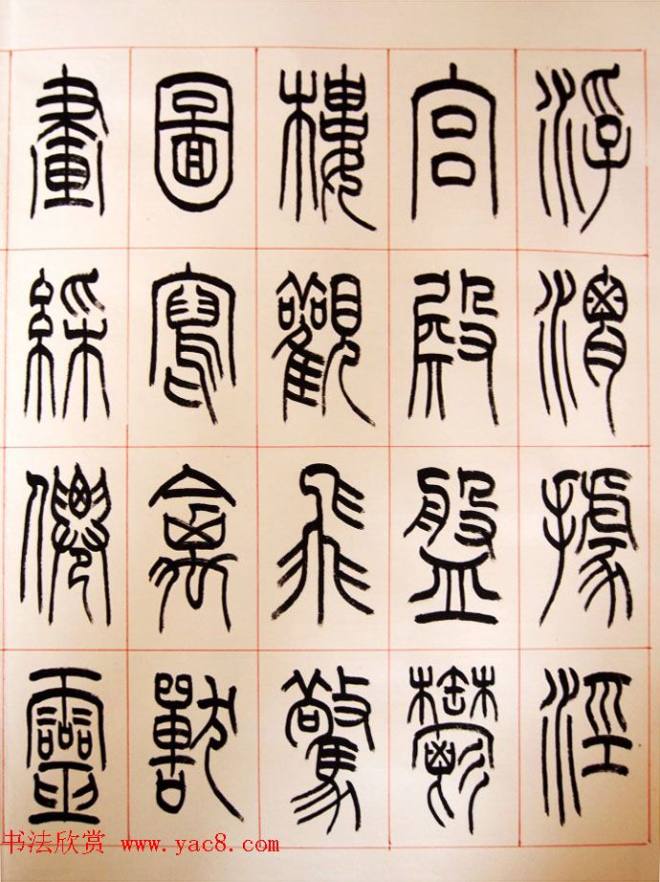 浮渭據涇
宮殿盤鬱
樓觀飛驚
圖寫禽獸
畫綵僊靈
书法欣赏 www.yac8.com